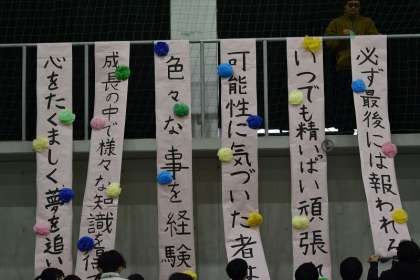 必ず最後には報われる
いつでも精いっぱい頑張れ
可能性に気づいた者よ
色々な事を経験
成長の中で様々な知識を得
心をたくましく夢を追い